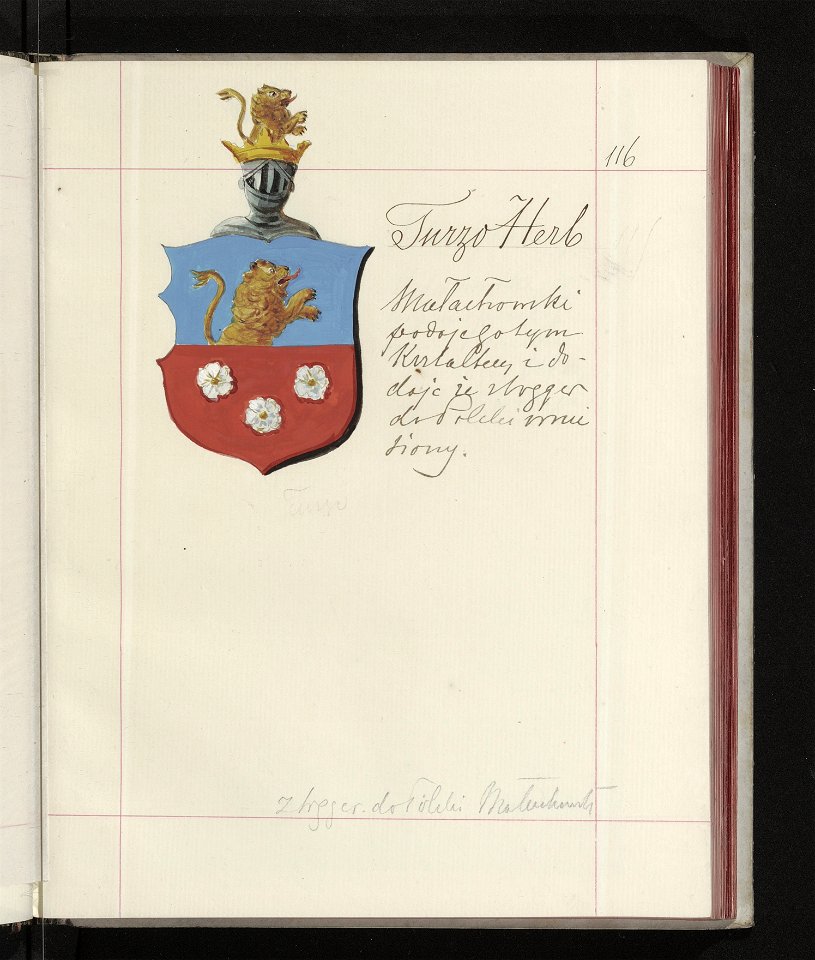 116
Turzo Herb
Małachowski
podaje go tym
Kształtem i do-
daje że z Węgier
do Polski wnie
siony.
Turzo
z Węgier do Polski Małachowski